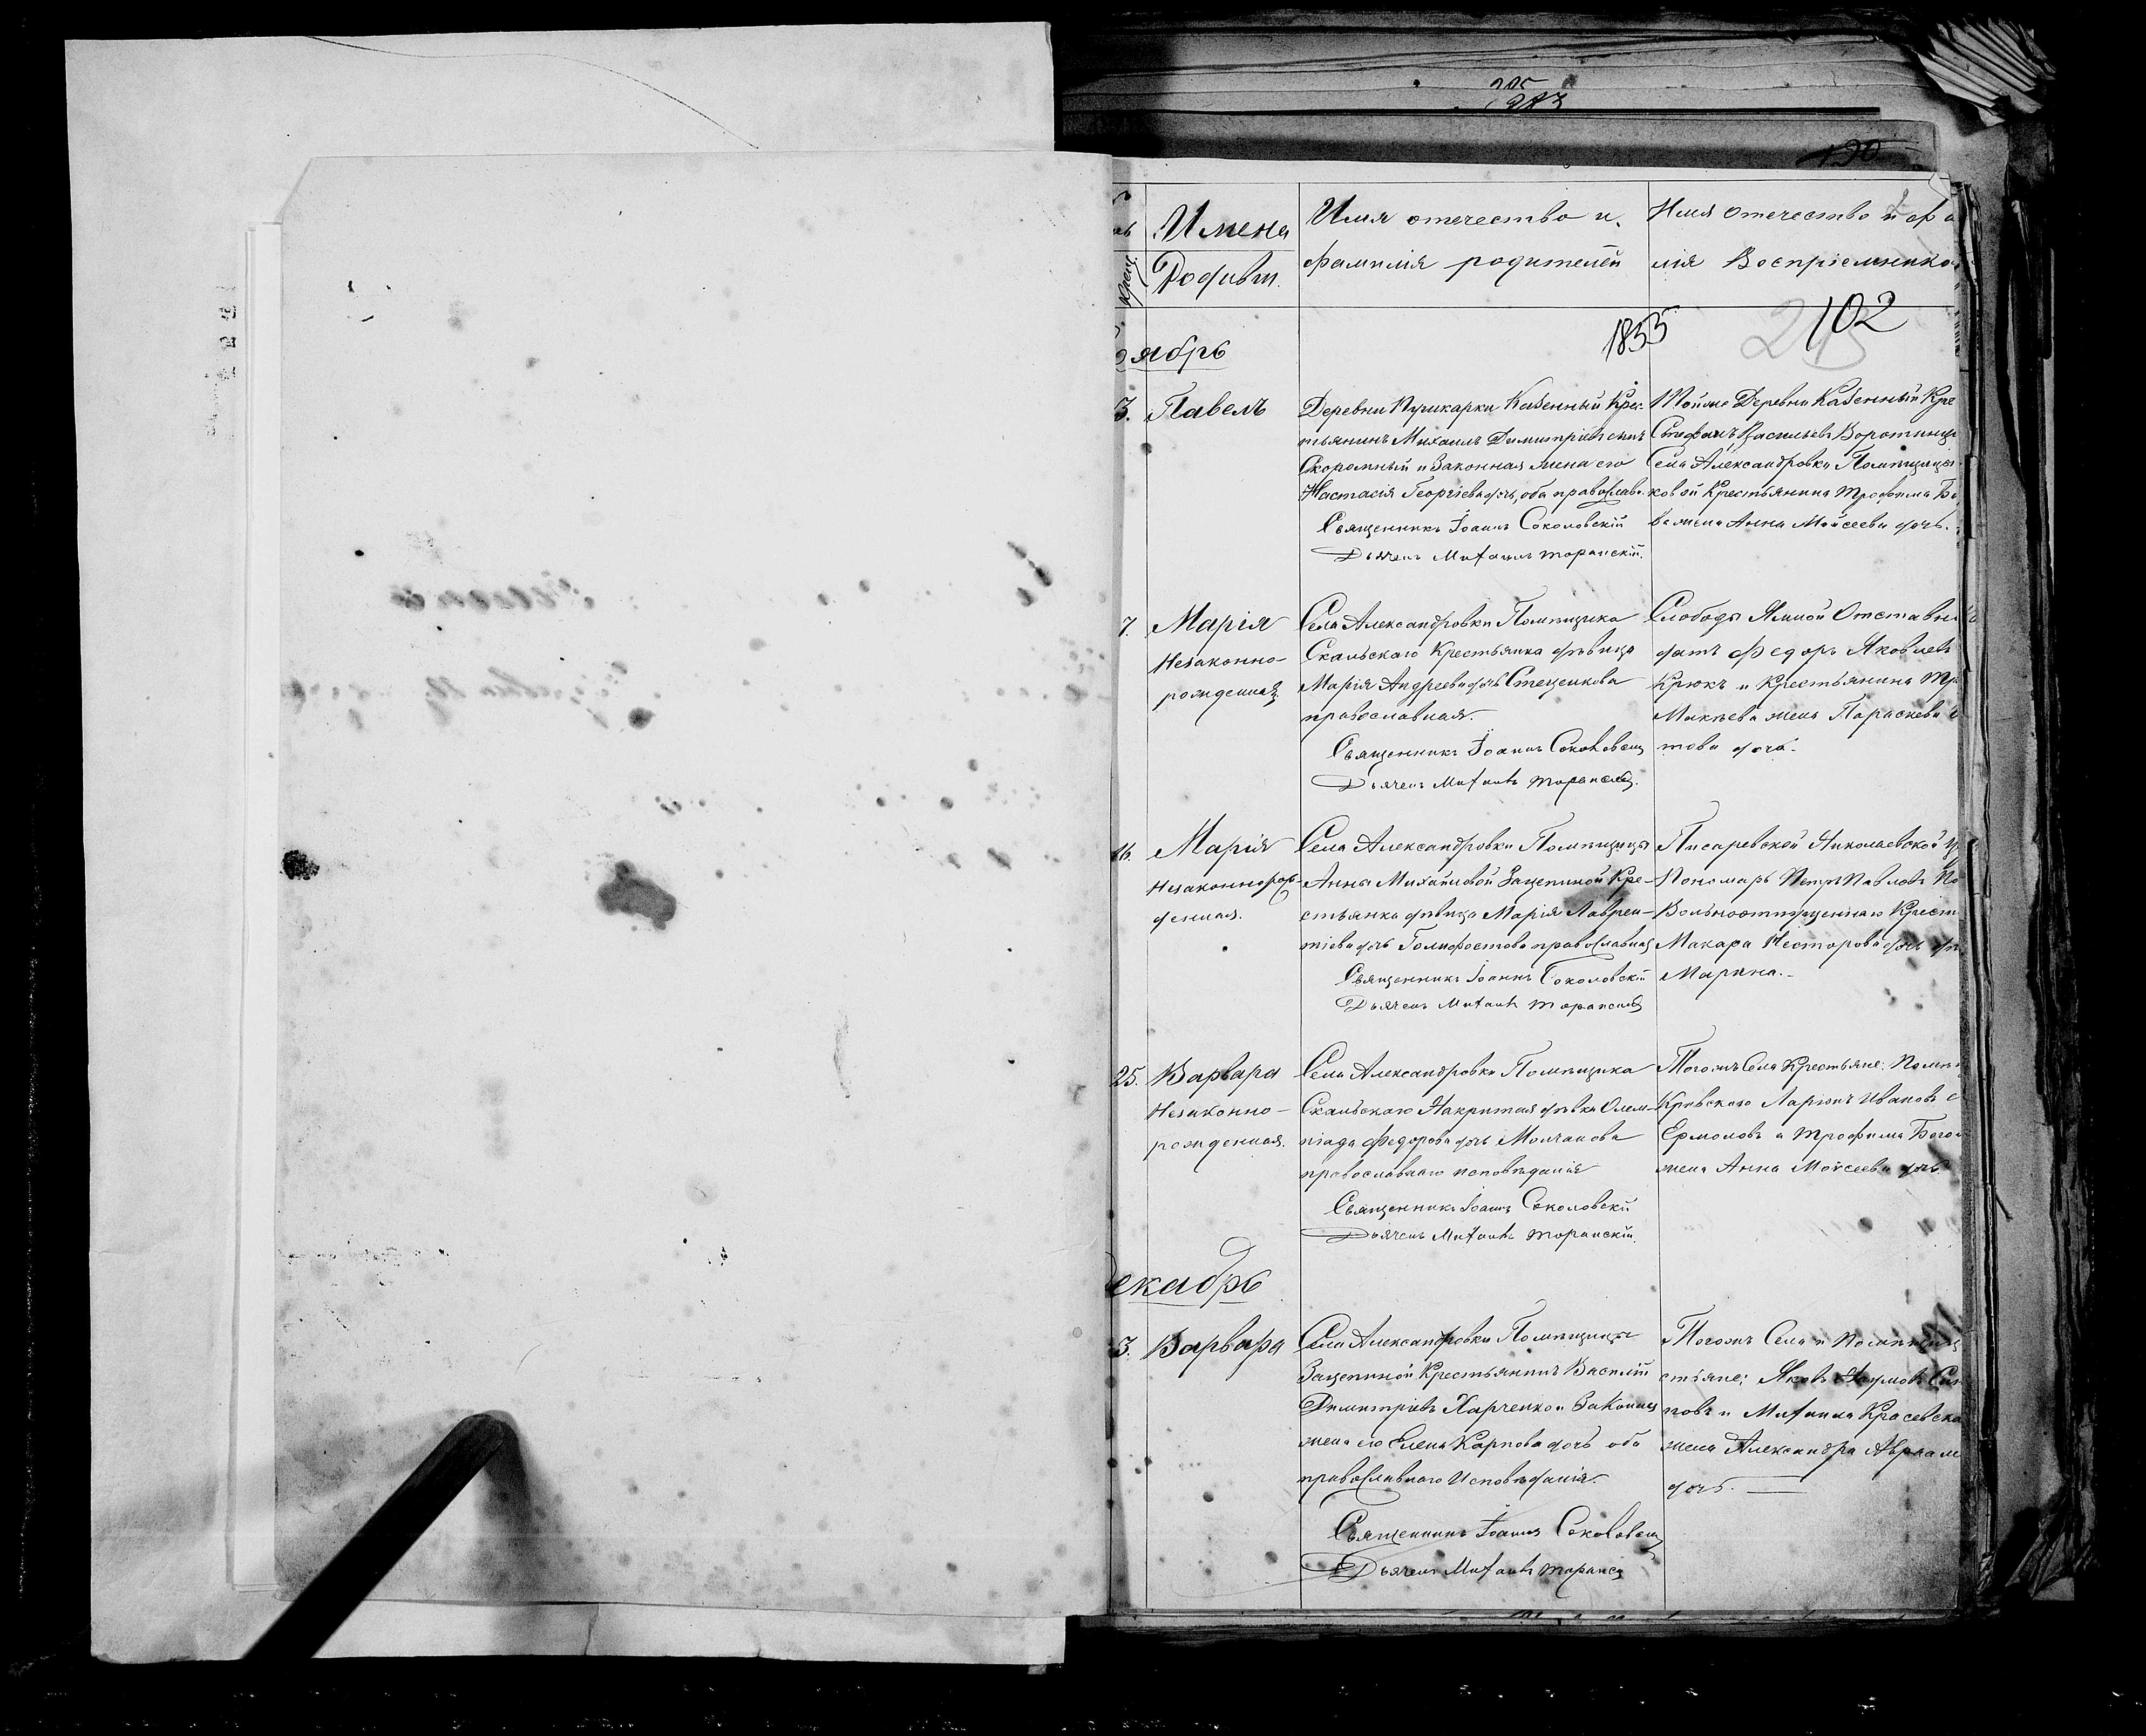 190
Имена
Родивш.
Крещ.
Имя отечество и
фамилія родителей
Имя отечество и фа
лія Воспріемнико
1855
102
ябрь
3. Павелъ
Деревни Пушкарки Казенный Крес-
тьянинъ Михаилъ Димитріевъ сынъ
Скоромный и Законная жена его
Настасія Георгіева дочь, оба православн.
Священникъ Іоаннъ Соколовскій
Дьячекъ Михаилъ Торанскій.
Тойже Деревни Казенный Кре
Стефанъ Васильевъ
Села Александровки Помѣщицы
ковой Крестьянина Трофима Бо
ва жена Анна Мойсеева дочь.
7. Марія
Незаконно-
рожденная
Села Александровки Помѣщика
Скальскаго Крестьянка дѣвица
Марія Андреева дочь Стеценкова
православная.
Священникъ Іоаннъ Соколовскій
Дьячекъ Михаилъ Торанскій.
Слободы Ямной Отставн
датъ Федоръ Яковлевъ
Крюкъ и Крестьянина Тр
Макѣева жена Параскева
това дочь.
16. Марія
Незаконнорож-
денная.
Села Александровки Помѣщицы
Анны Михайловой Зацепиной Кре-
стьянка дѣвица Марія Лаврен-
тіева дочь православная
Священникъ Іоаннъ Соколовскій
Дьячекъ Михаилъ Торанскій
Писаревской Николаевской Ц
Пономарь Петръ Павловъ По
Вольноотпущеннаго Крест
Макара Несторова дочь дѣ
Марина.-
25. Варвара
Незаконно-
рожденная.
Села Александровки Помѣщика
Скальскаго Накритая дѣвка Олим-
піада Федорова дочь Молчанова
православнаго исповѣданія
Священникъ Іоаннъ Соколовскій
Дьячекъ Михаилъ Торанскій.
Тогожъ Села Крестьяне: Помѣщ
Ларіонъ Ивановъ с
Ермоловъ и Трофима Бого
жена Анна Мойсеева дочь
екабрь
3. Варвара
Села Александровки Помѣщицы
Зацепиной Крестьянинъ Василій
Димитріевъ Харченко и Законная
жена его Елена Карпова дочь оба
православнаго Исповѣданія.
Священникъ Іоаннъ Соколовскій
Дьячекъ Михаилъ Торанскій
Тогожъ Села и Помѣщицы
стьяне: Яковъ Наумовъ
новъ и Михаила Красевска
жена Александра Авраам
дочь.